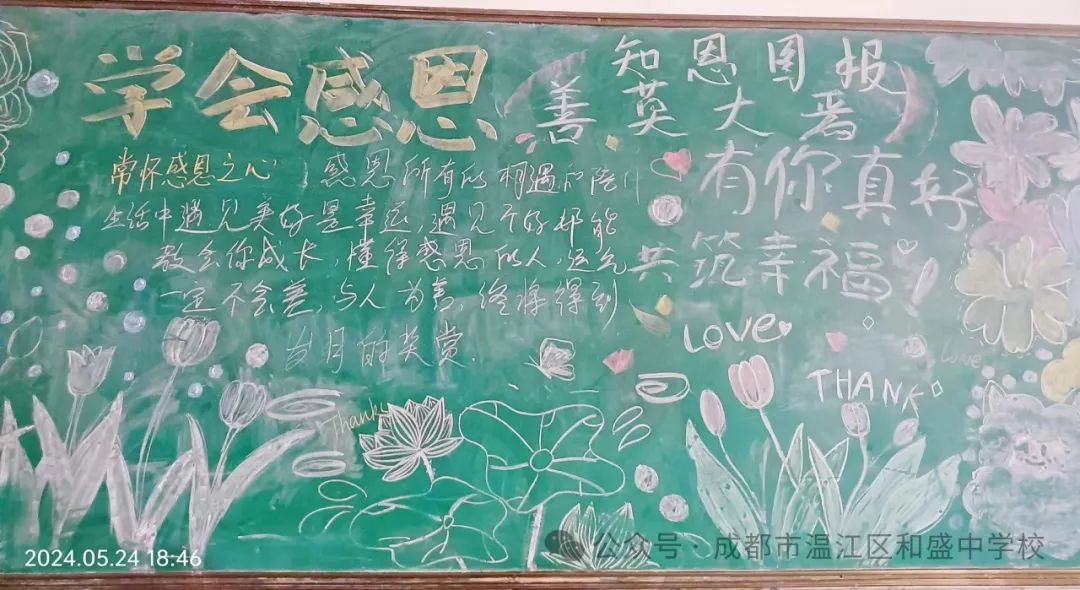 学会感恩
知恩图报
善莫大焉
有你真好
共筑幸福
常怀感恩之心
感恩所有的相遇和陪伴
生活中遇见美好是幸运,遇见不好却能
教会你成长,懂得感恩的人,运气
一定不会差,与人为善,终将得到
岁月的奖赏.
LOVE
Love
THANK
Thank
2024.05.24 18:46
公众号·成都市温江区和盛中学校